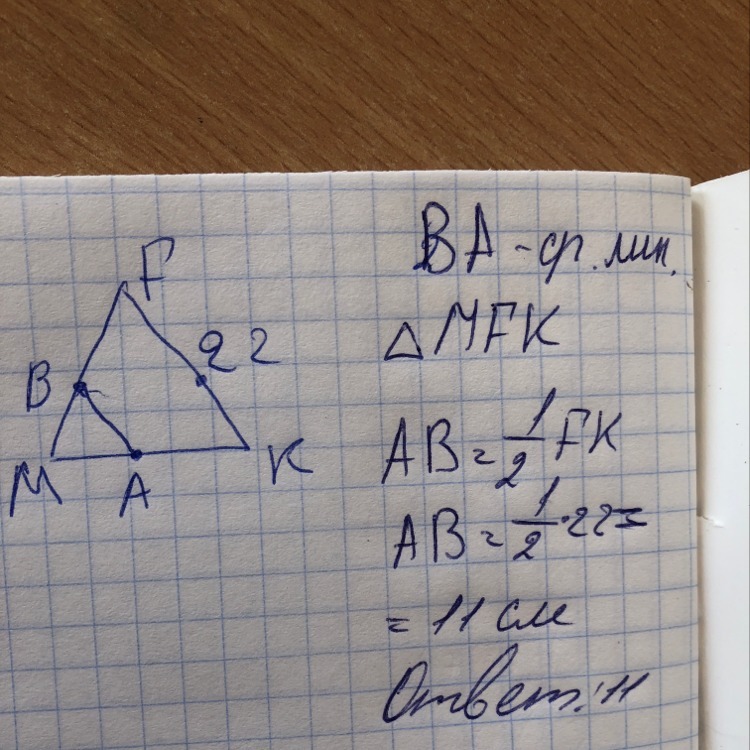 F
22
B
M A K
BA - ср. лин.
△MFK
AB = 1/2 FK
AB = 1/2 · 22 =
= 11 см
Ответ: 11